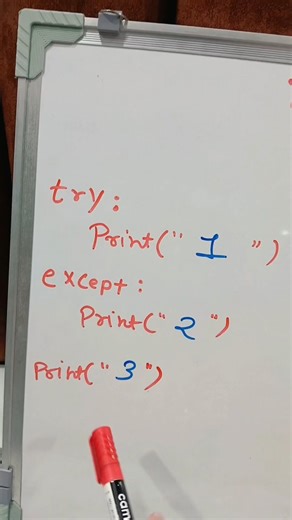 try:
Print(" 1 ")
except:
Print("2")
Print("3")
cam